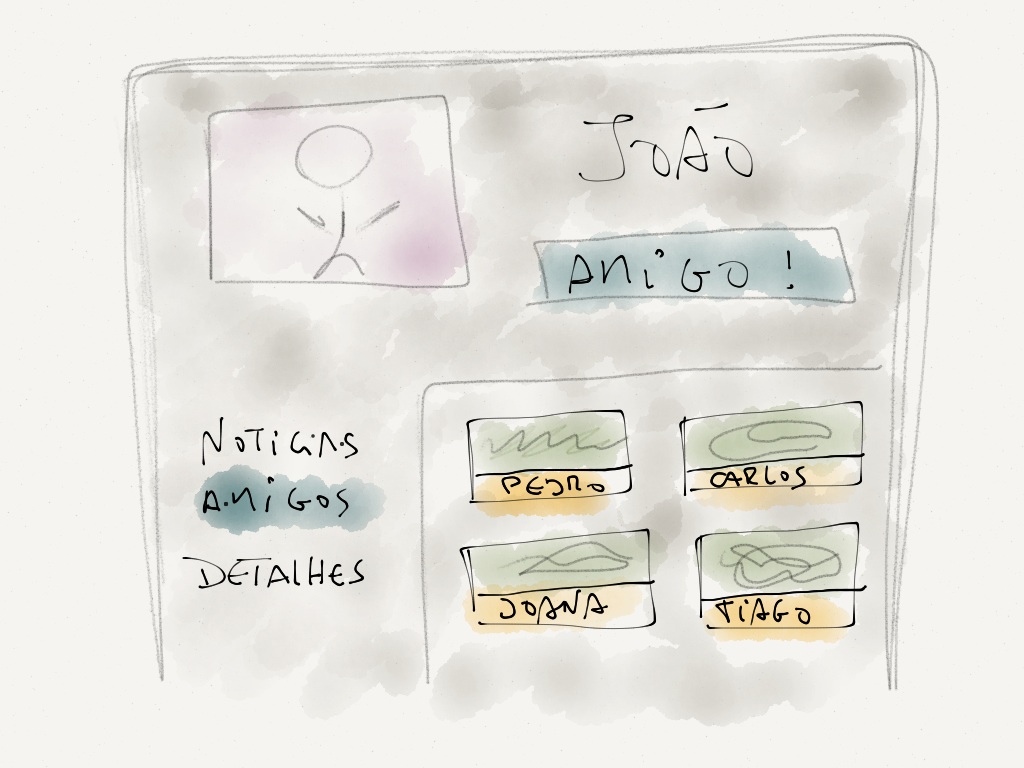 JOÃO
AMIGO !
NOTICIAS
AMIGOS
DETALHES
PEDRO
CARLOS
JOANA
TIAGO